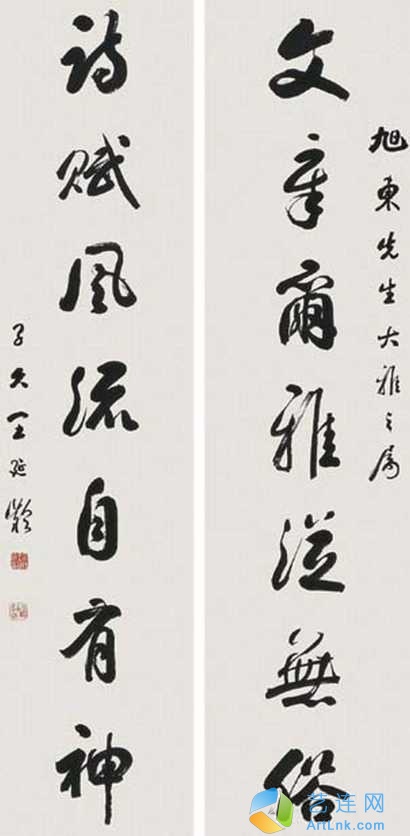 旭東先生大雅之屬
文章爾雅從無俗
詩賦風流自有神
子久王延
艺连网
ArtLnk.com